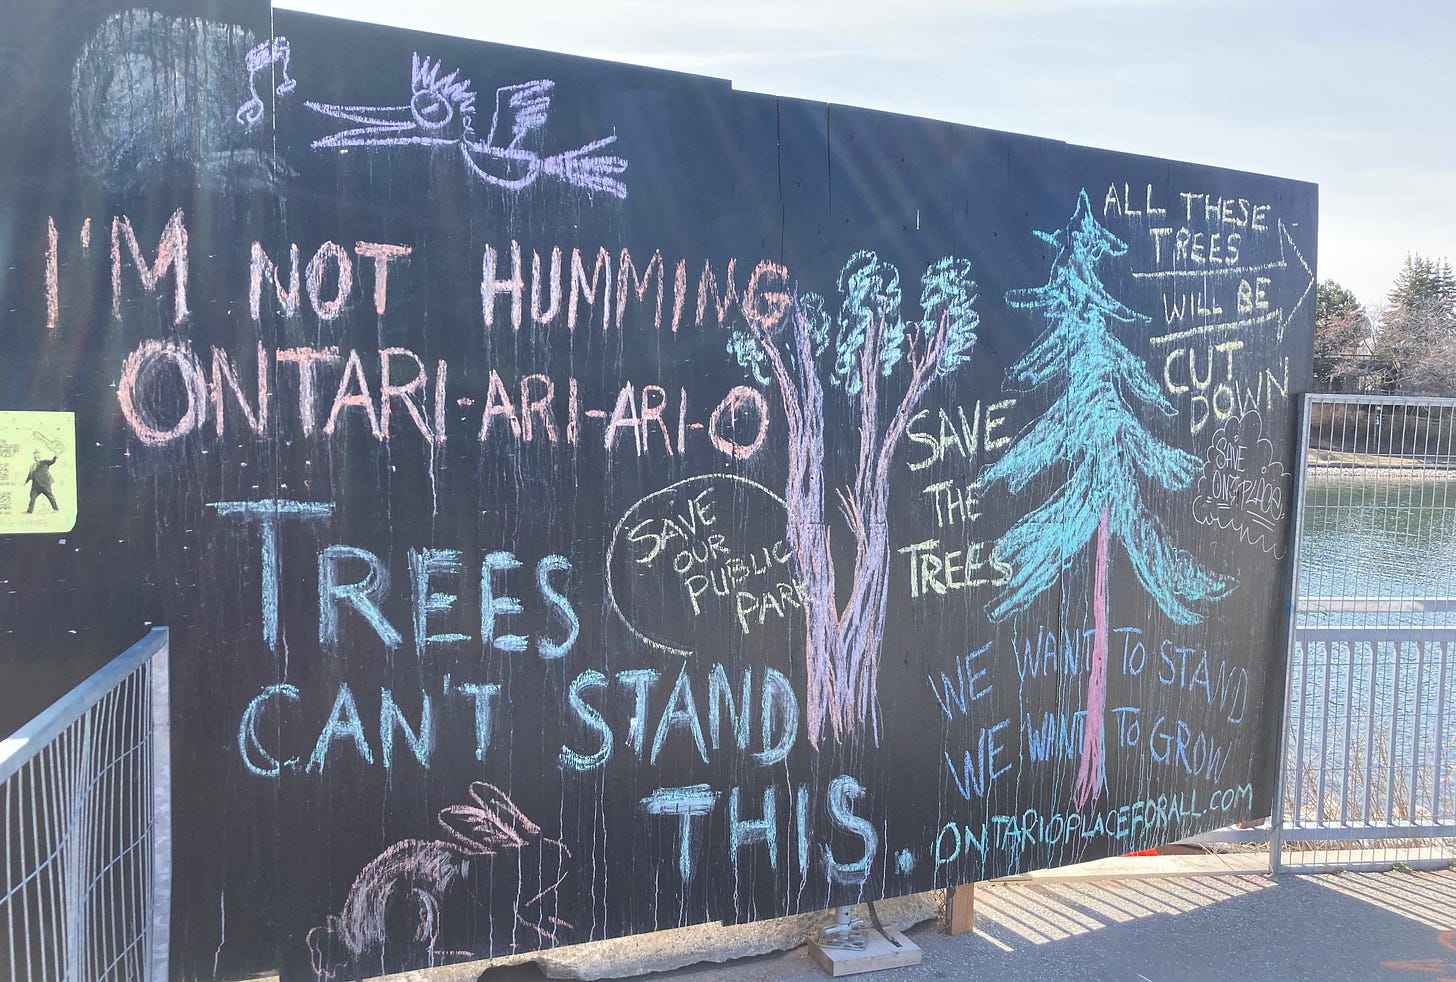 I'M NOT HUMMING
ONTARI-ARI-ARI-O
TREES
CAN'T STAND
THIS.
SAVE
OUR
PUBLIC
PARK
SAVE
THE
TREES
ALL THESE
TREES
WILL BE
CUT
DOWN
SAVE
ONT. PLACE
WE WANT TO STAND
WE WANT TO GROW
ONTARIOPLACEFORALL.COM